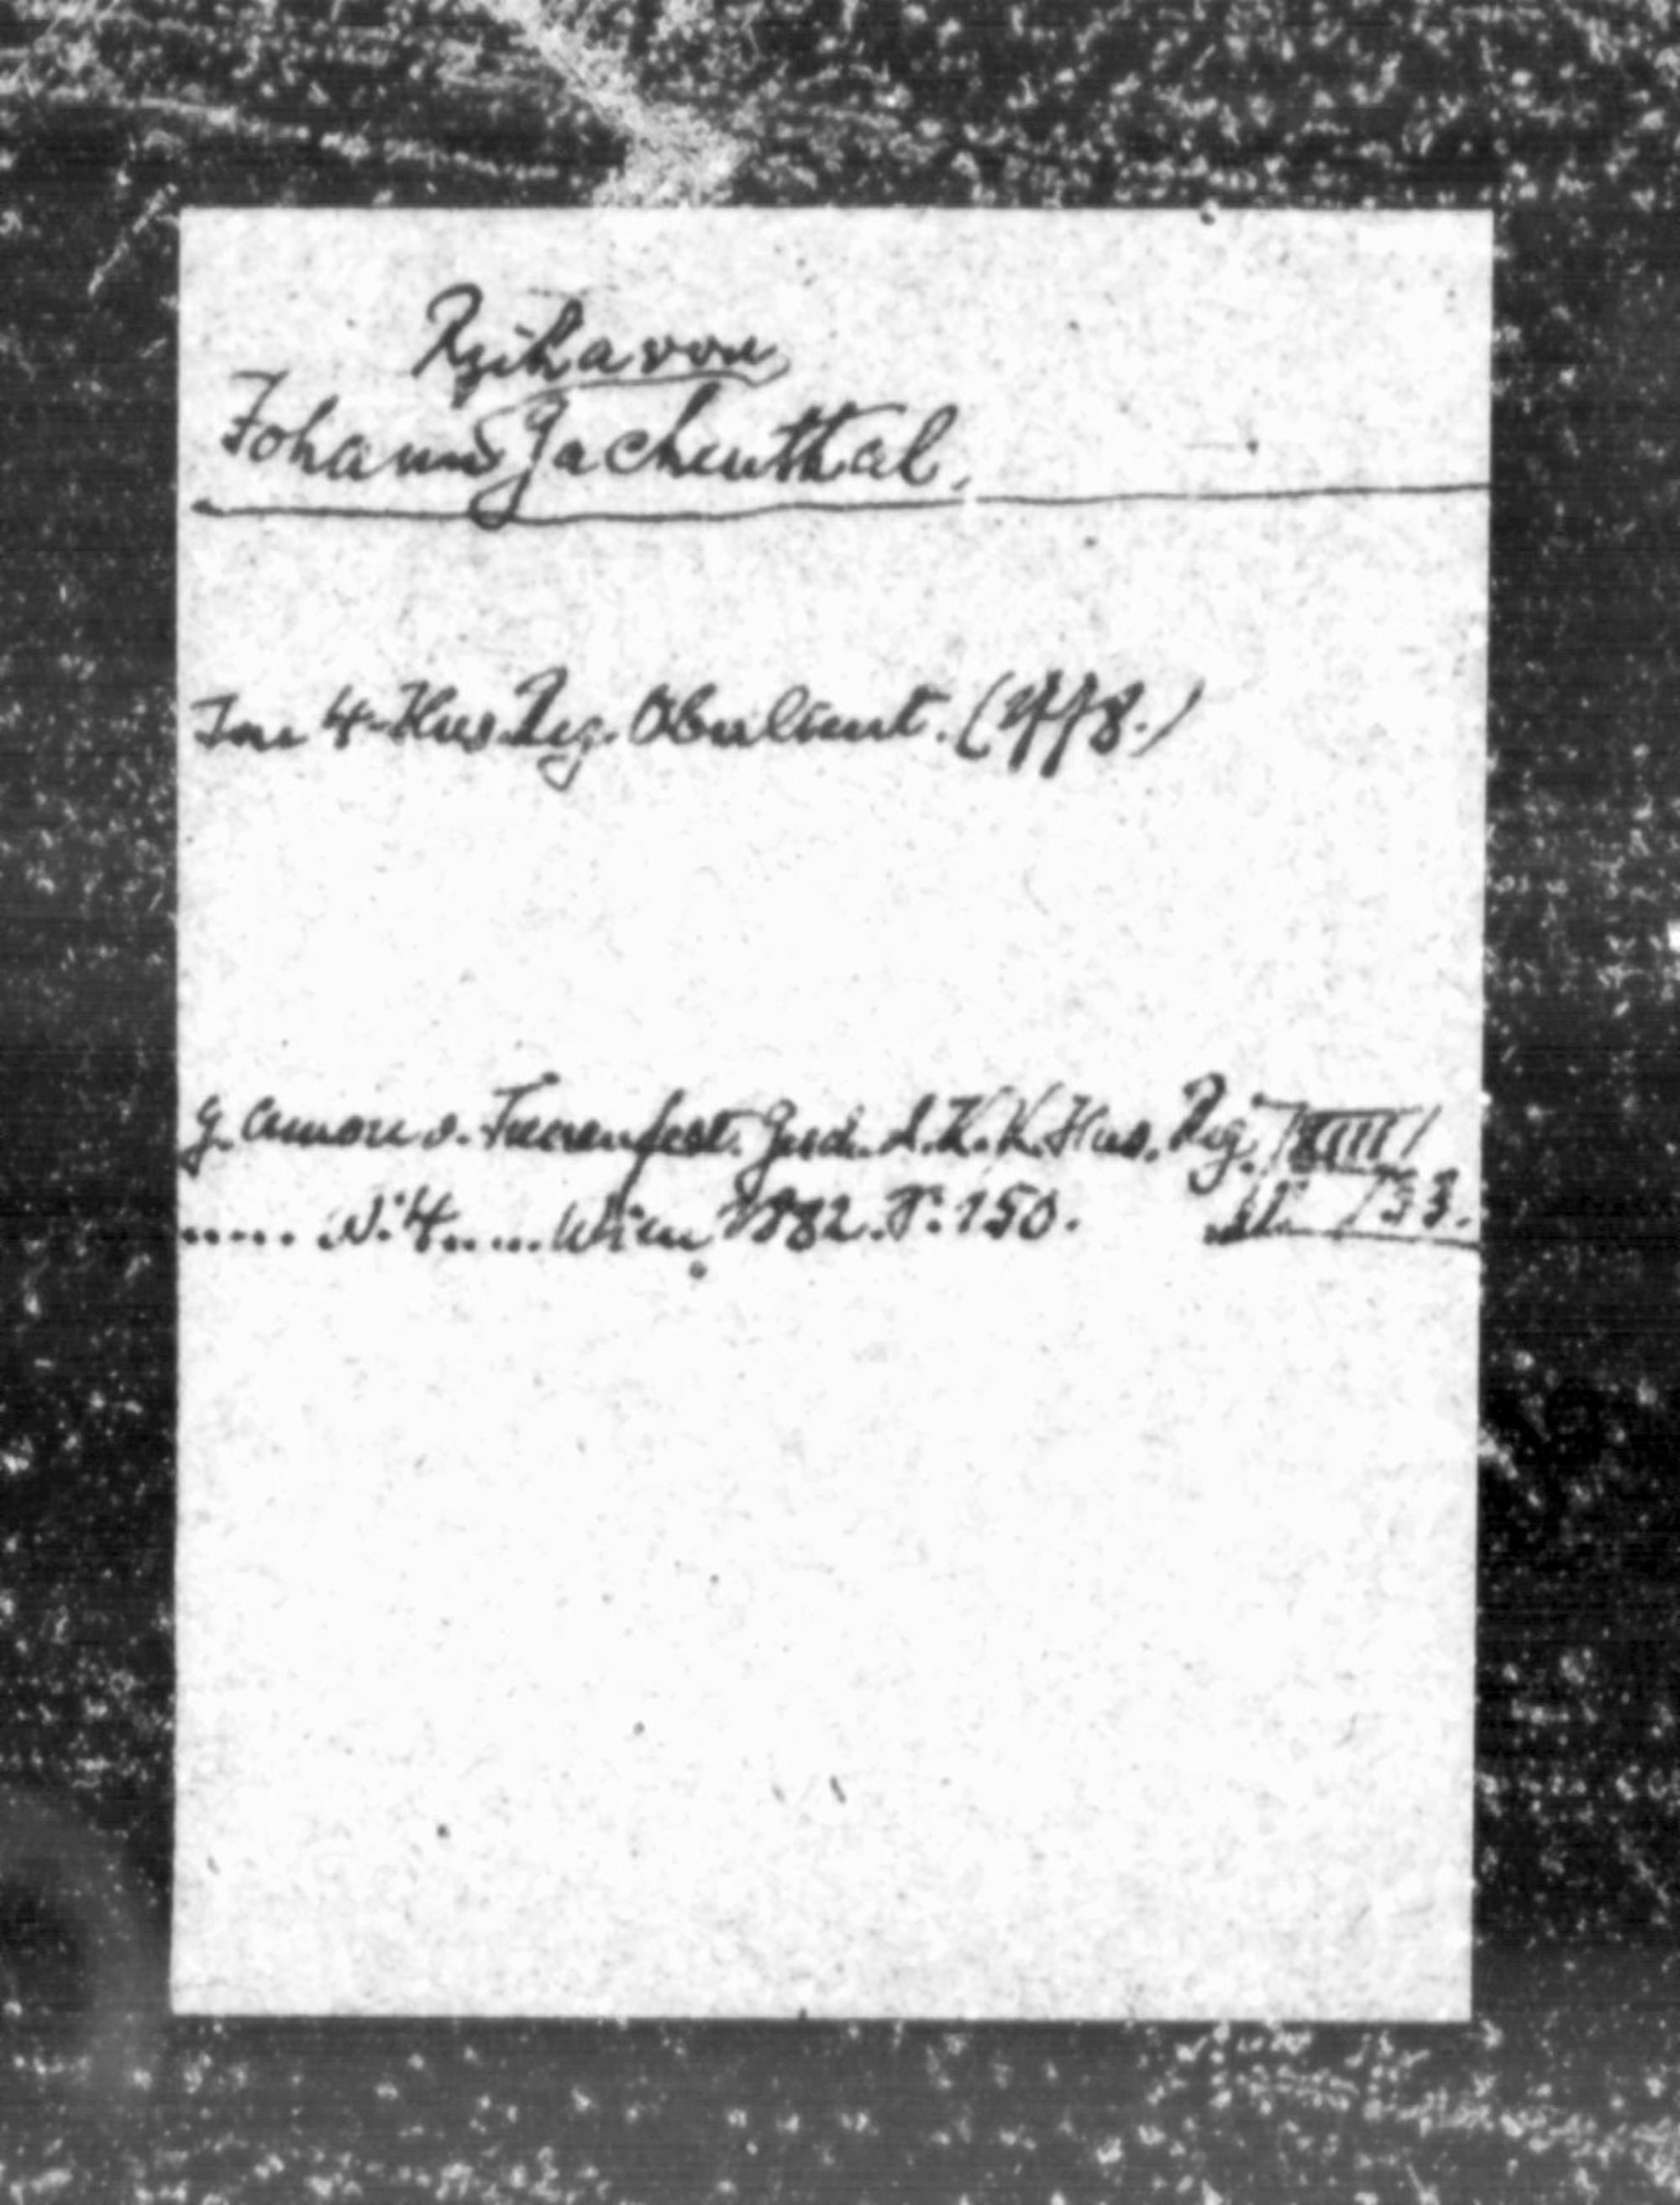 Rzika von
Johann Jachenthal.
Im 4. Hus. Reg. Oberlieut. (1778.)
G. Amon v. Treuenfest. Gesch. d. K. K. Hus. Reg.
..... N. 4..... Wien 1882. P. 150.